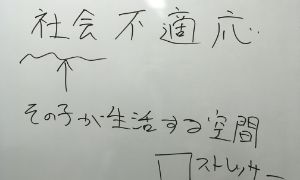 社会不適応
その子が生活する空間
ストレッサー